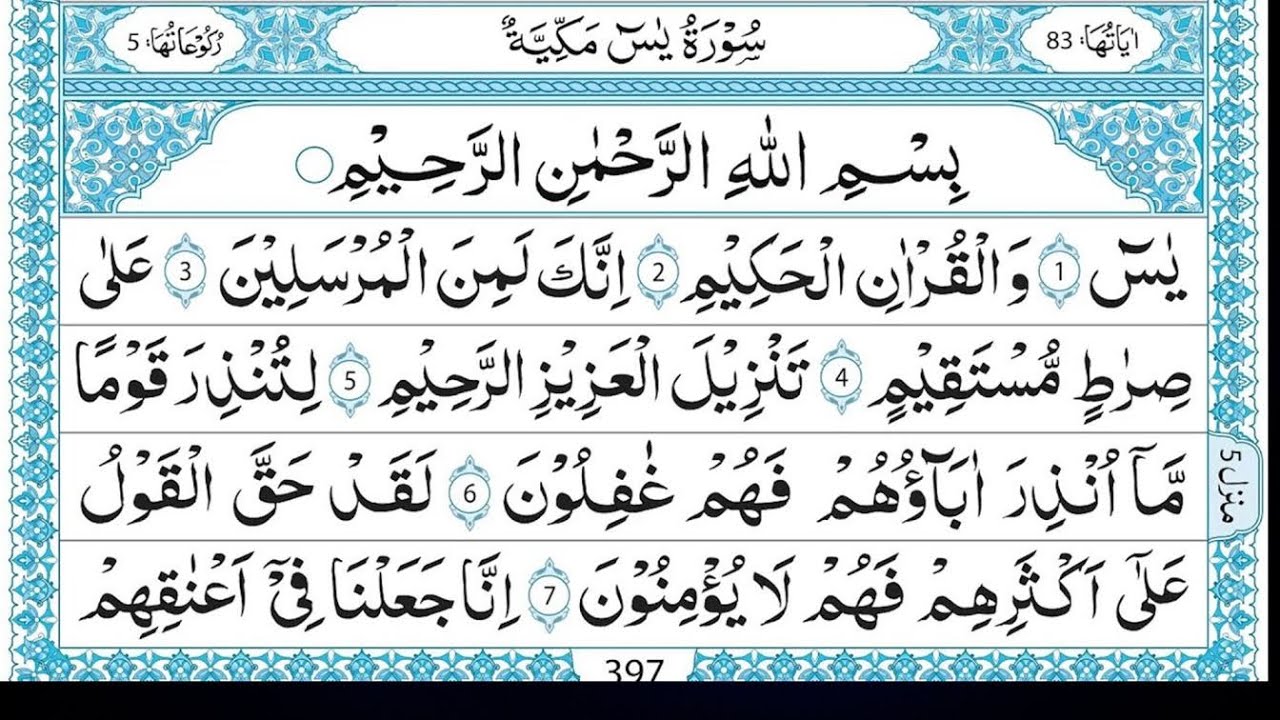 اٰيَاتُهَا: 83
سُوْرَةُ يٰسٓ مَكِّيَّةٌ
رُكُوْعَاتُهَا: 5
بِسْمِ اللّٰهِ الرَّحْمٰنِ الرَّحِيْمِ
يٰسٓ 1 وَالْقُرْاٰنِ الْحَكِيْمِ 2 اِنَّكَ لَمِنَ الْمُرْسَلِيْنَ 3 عَلٰى
صِرٰطٍ مُّسْتَقِيْمٍ 4 تَنْزِيْلَ الْعَزِيْزِ الرَّحِيْمِ 5 لِتُنْذِرَ قَوْمًا
مَّآ اُنْذِرَ اٰبَآؤُهُمْ فَهُمْ غٰفِلُوْنَ 6 لَقَدْ حَقَّ الْقَوْلُ
عَلٰٓى اَكْثَرِهِمْ فَهُمْ لَا يُؤْمِنُوْنَ 7 اِنَّا جَعَلْنَا فِيْٓ اَعْنٰقِهِمْ
منزل 5
397